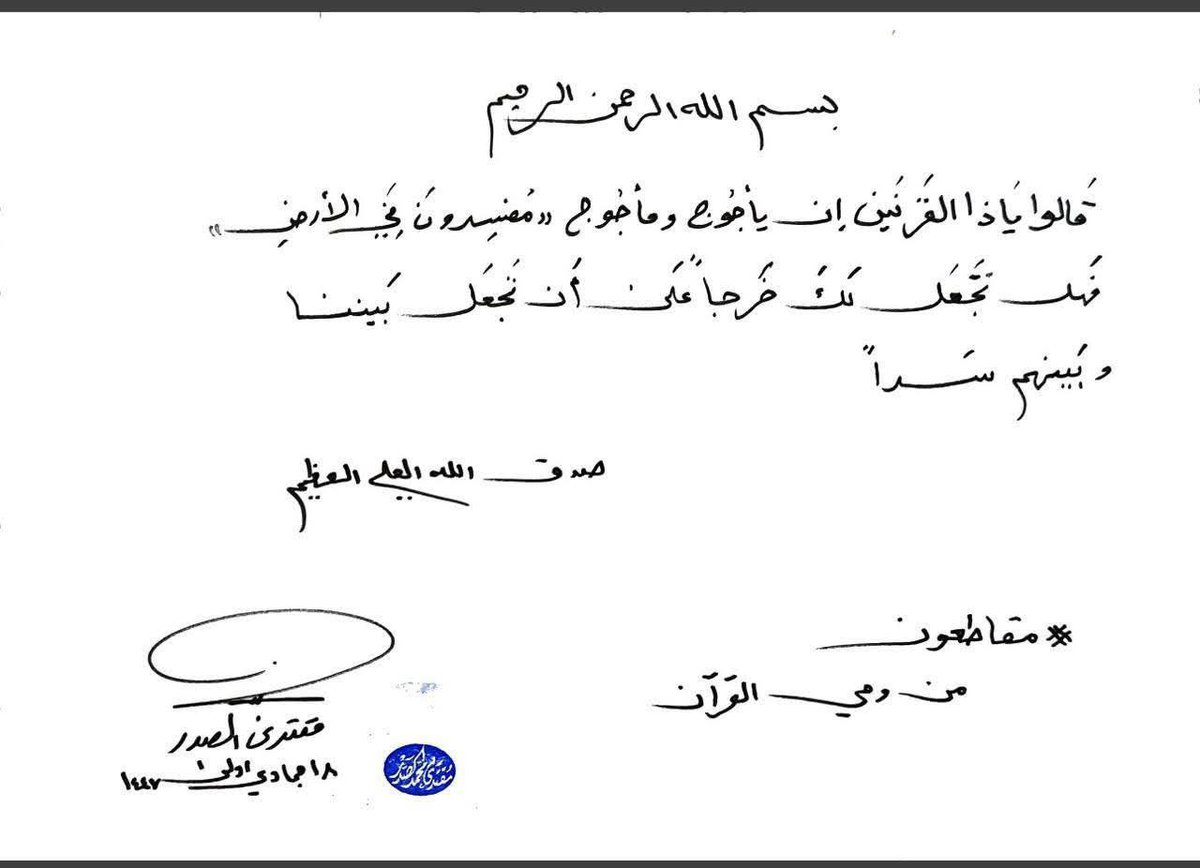 بسم الله الرحمن الرحيم
قَالوا يَاذا القَرْنَين إن يأجُوج ومأجُوج «مُفسِدونَ فِي الأرضِ»
فَهل نَجْعَل لَكَ خَرجاً عَلى أَن تَجعَل بَيننا
وبَينهم سَداً
صدق الله العلي العظيم
* مقاطعون
من وحي القرآن
مقتدى الصدر
١٨ جمادي اولى ١٤٤٧